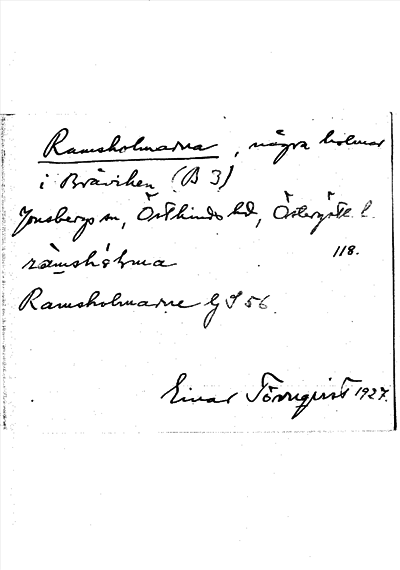 Ramsholmarna, några holmar
i Bråviken (B 3)
Jonsbergs sn, Östkinds hd, Östergötl. l.
118.
ràmshólma
Ramsholmarne GS 56.
Einar Törnqvist 1927.